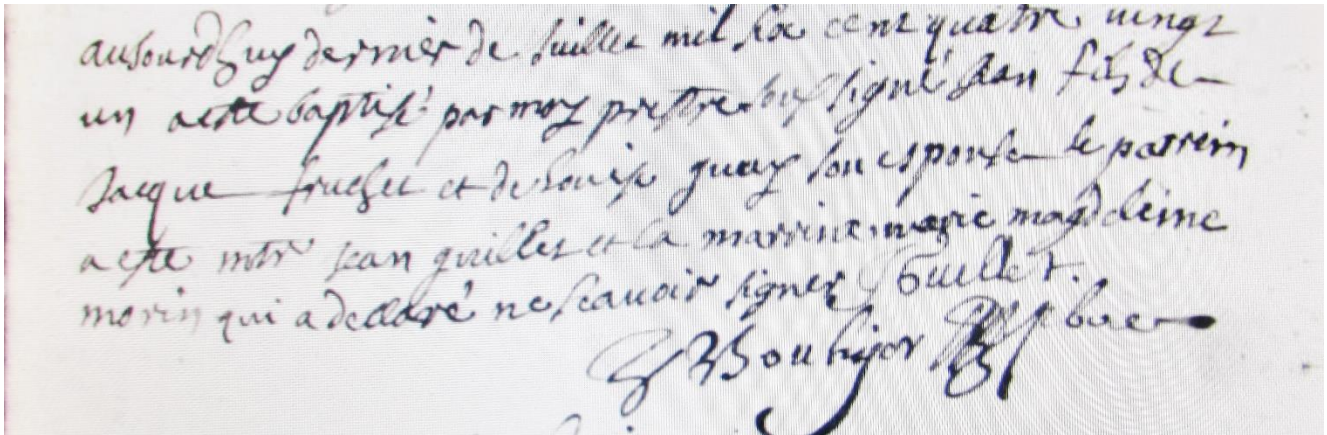 aujourdhuy dernier de juillet mil six cent quatre vingt
un a esté baptisé par moy prestre soussigné Jean fils de
Jacque fruchet et de Louise guay son espouse le parrein
a esté mtre Jean guillet et la marrine marie magdeleine
morin qui a declaré ne scavoir signer JGuillet.